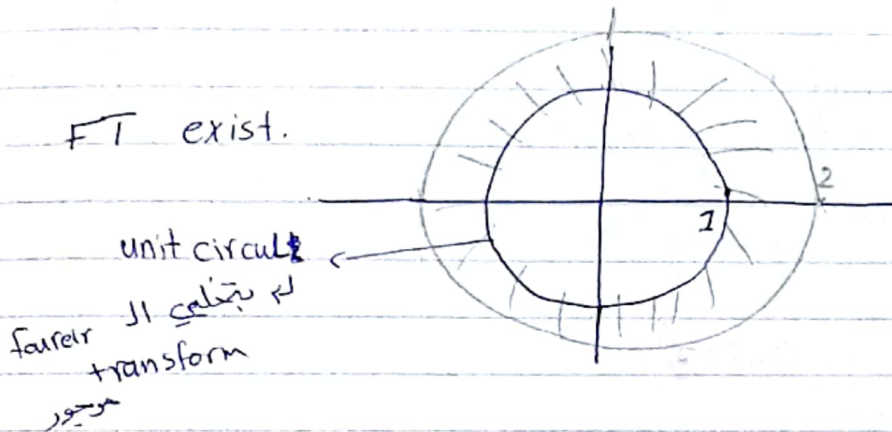 FT exist.
2
1
unit circult
لم بتخلي ال
foureir
transform
موجود